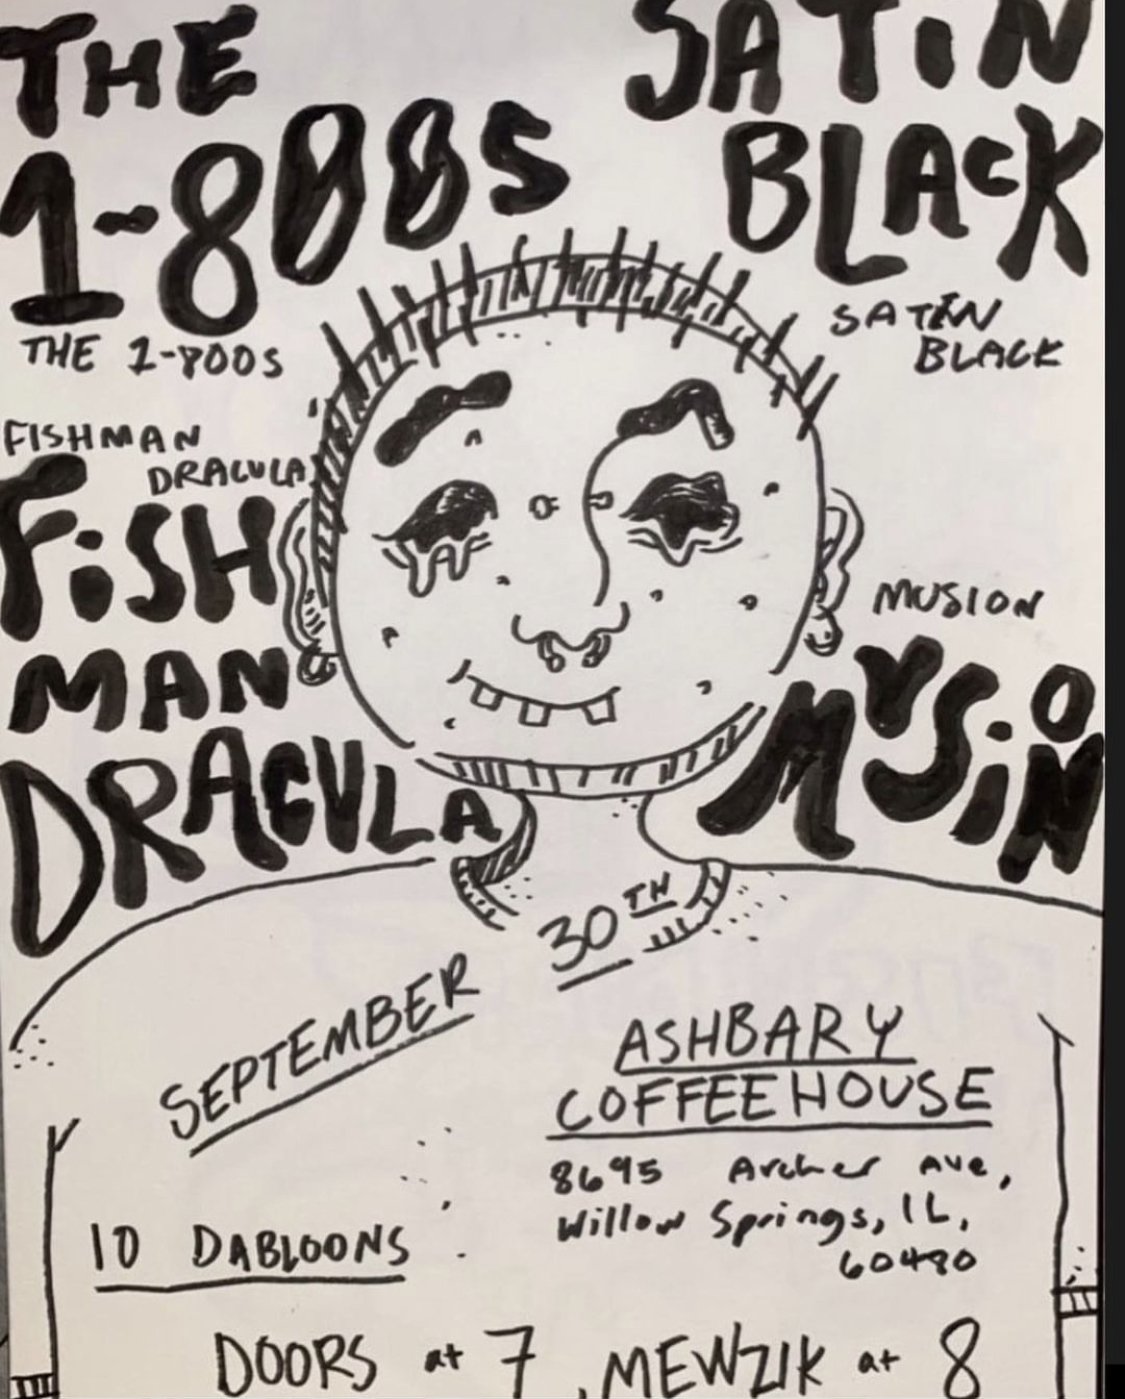 THE
1-800s
THE 1-800s
SATiN
BLACK
SATIN
BLACK
FISHMAN
DRACULA
FiSH
MAN
DRACULA
MUSION
MUSiON
SEPTEMBER 30TH
ASHBARY
COFFEEHOUSE
8695 Archer Ave,
Willow Springs, IL,
60480
10 DABLOONS
DOORS at 7, MEWZIK at 8